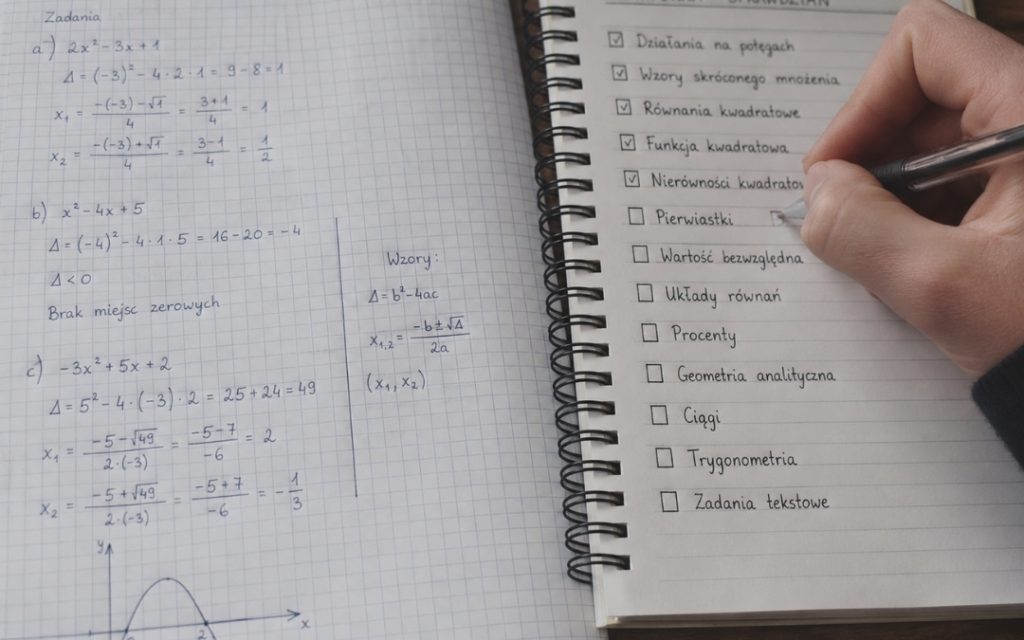 Zadania
a) 2x² - 3x + 1
Δ = (-3)² - 4 · 2 · 1 = 9 - 8 = 1
x₁ = \frac{-(-3) - √1}{4} = \frac{3+1}{4} = 1
x₂ = \frac{-(-3) + √1}{4} = \frac{3-1}{4} = \frac{1}{2}
b) x² - 4x + 5
Δ = (-4)² - 4 · 1 · 5 = 16 - 20 = -4
Δ < 0
Brak miejsc zerowych
c) -3x² + 5x + 2
Δ = 5² - 4 · (-3) · 2 = 25 + 24 = 49
x₁ = \frac{-5 - √49}{2·(-3)} = \frac{-5-7}{-6} = 2
x₂ = \frac{-5 + √49}{2·(-3)} = \frac{-5+7}{-6} = -\frac{1}{3}
y
x
2
Wzory:
Δ = b² - 4ac
x₁,₂ = \frac{-b ± √Δ}{2a}
(x₁, x₂)
☑ Działania na potęgach
☑ Wzory skróconego mnożenia
☑ Równania kwadratowe
☑ Funkcja kwadratowa
☑ Nierówności
☐ Pierwiastki
☐ Wartość bezwzględna
☐ Układy równań
☐ Procenty
☐ Geometria analityczna
☐ Ciągi
☐ Trygonometria
☐ Zadania tekstowe